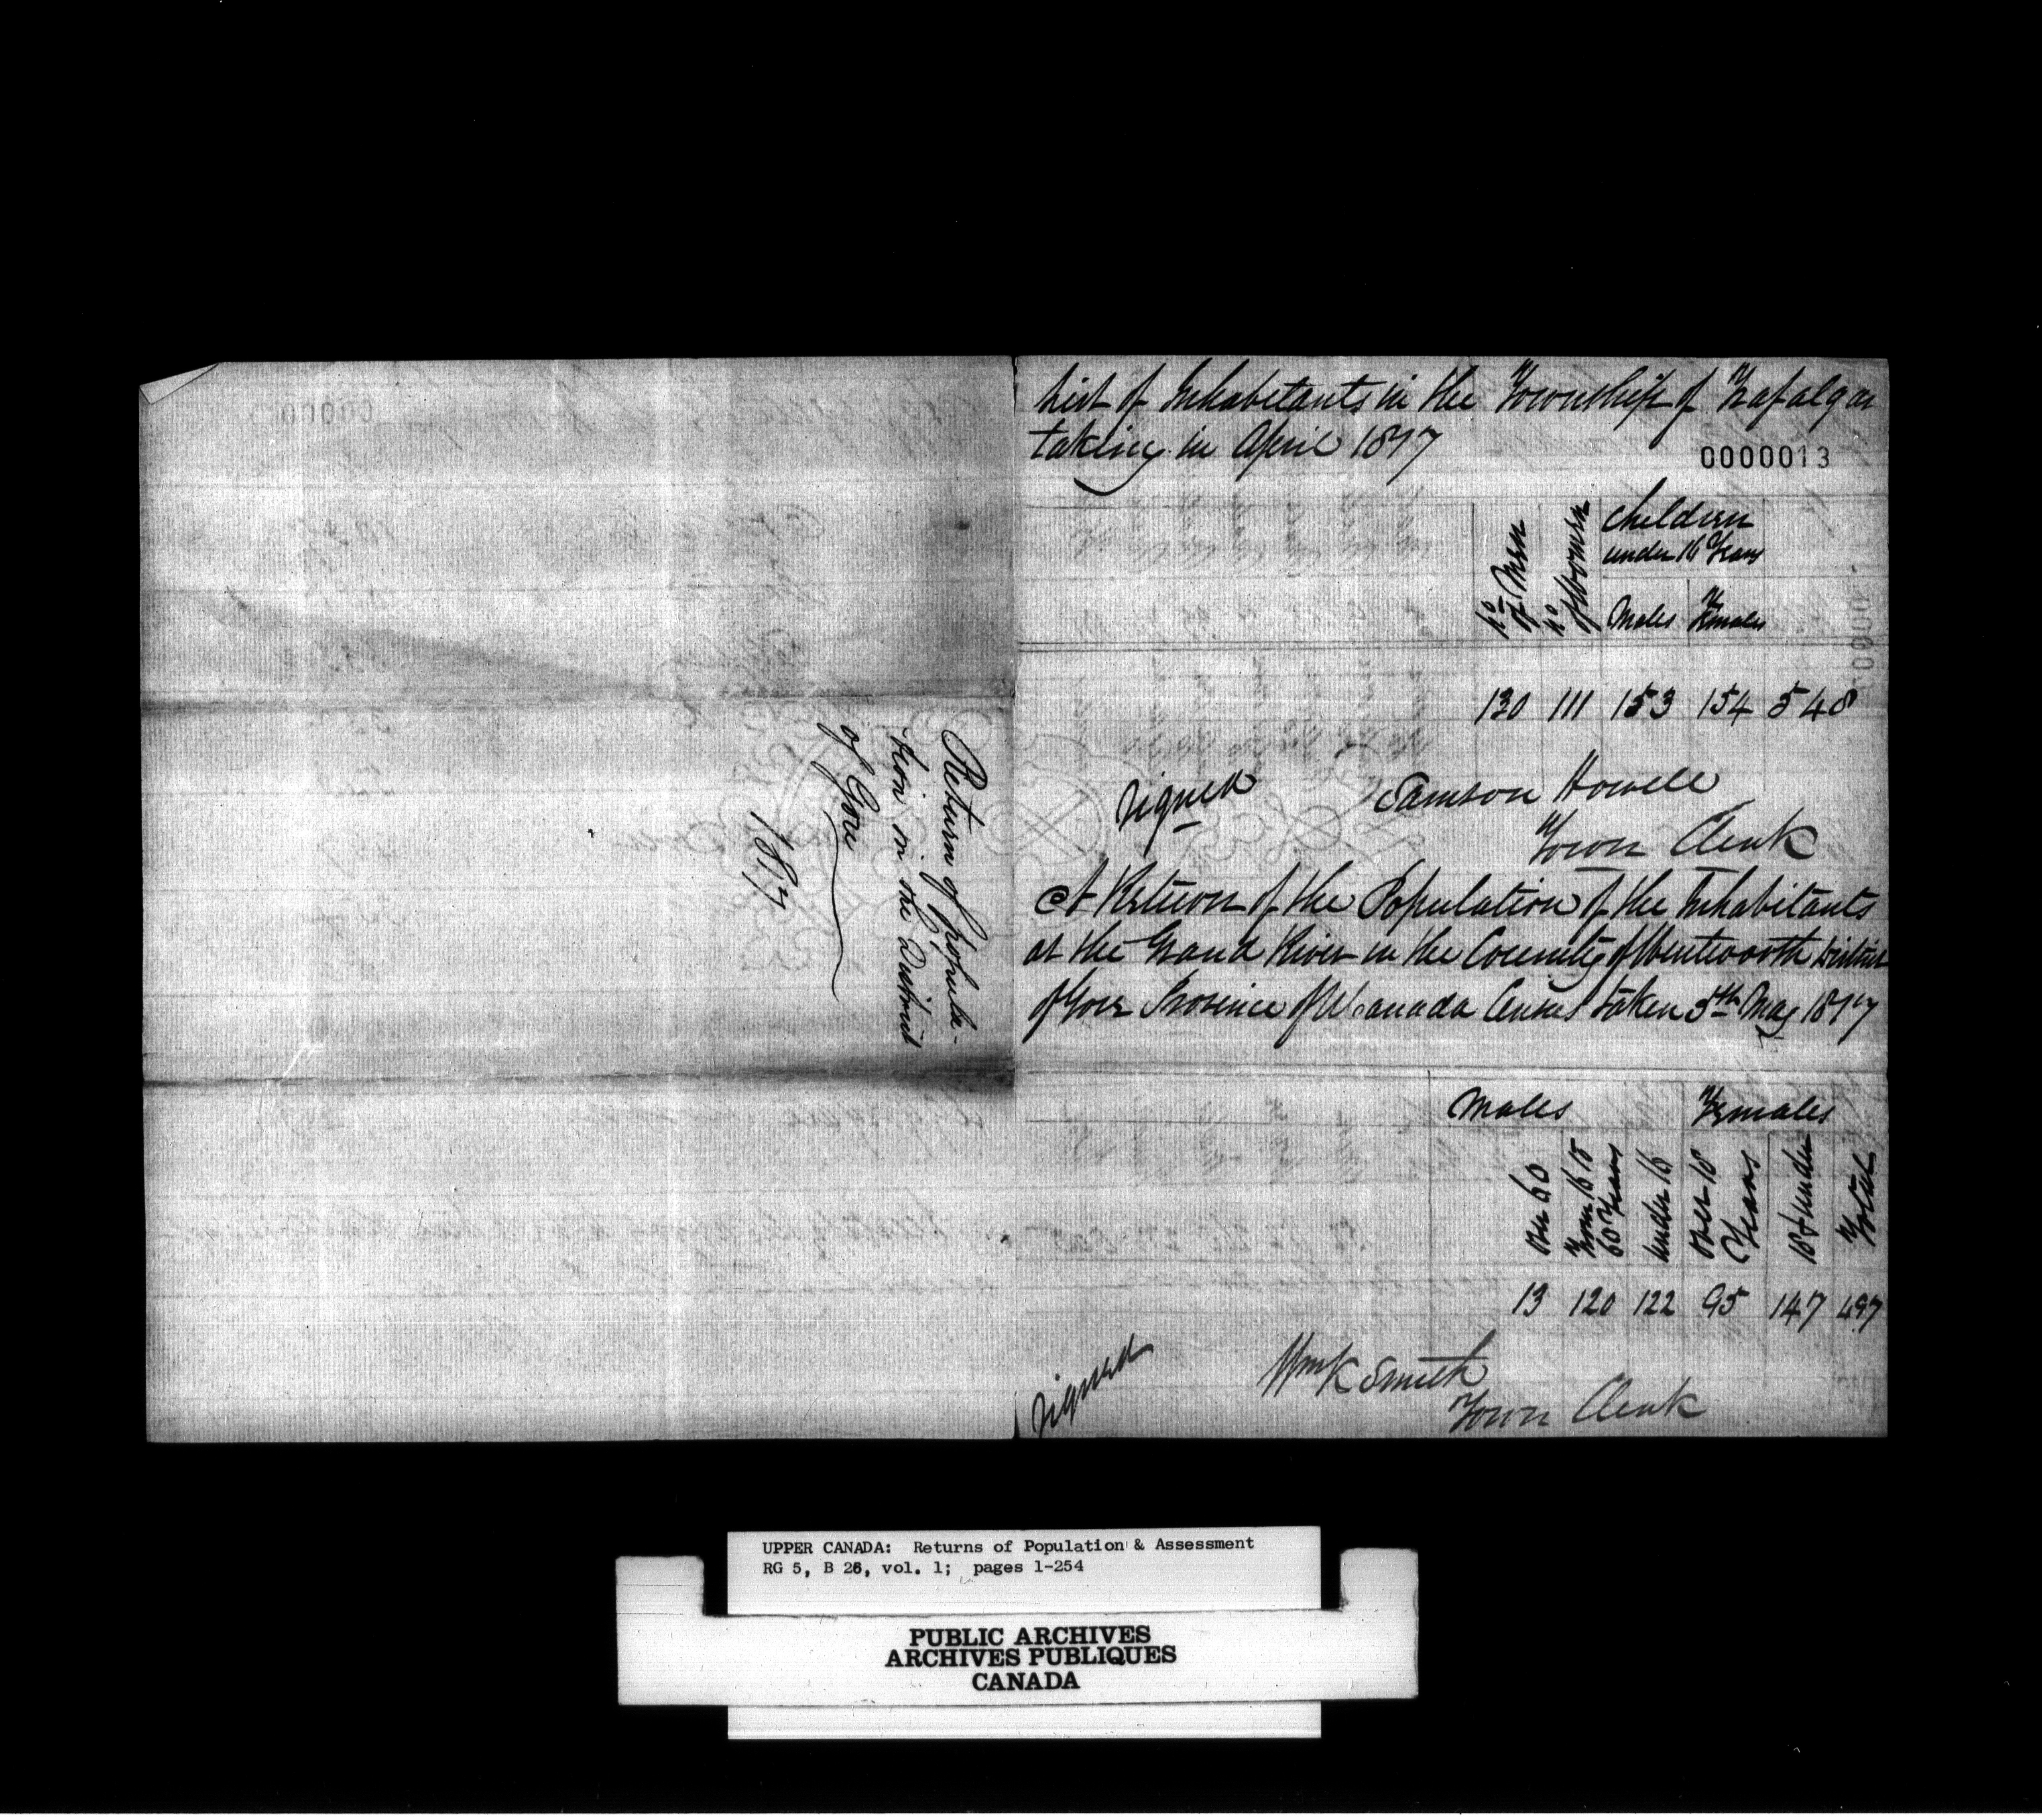 Return of popula-
tion in the District
of Gore
1817
List of Inhabetants in the Township of Trafalgar
taking in April 1817
0000013
No of Men
No of Women
Children
under 16 Years
Males Females
130 111 153 154 548
Signed Samson Howell
Town Clerk
A Return of the Population of the Inhabitants
at the Grand River in the County of Wentworth District
of Gore Province of U Canada Census taken 5th May 1817
Males Females
Over 60
From 16 to
60 Years
Under 16
Over 16
Years
16 & under
Total
13 120 122 95 147 497
Signed Wm K Smith
Town Clerk
UPPER CANADA: Returns of Population & Assessment
RG 5, B 26, vol. 1; pages 1-254
PUBLIC ARCHIVES
ARCHIVES PUBLIQUES
CANADA